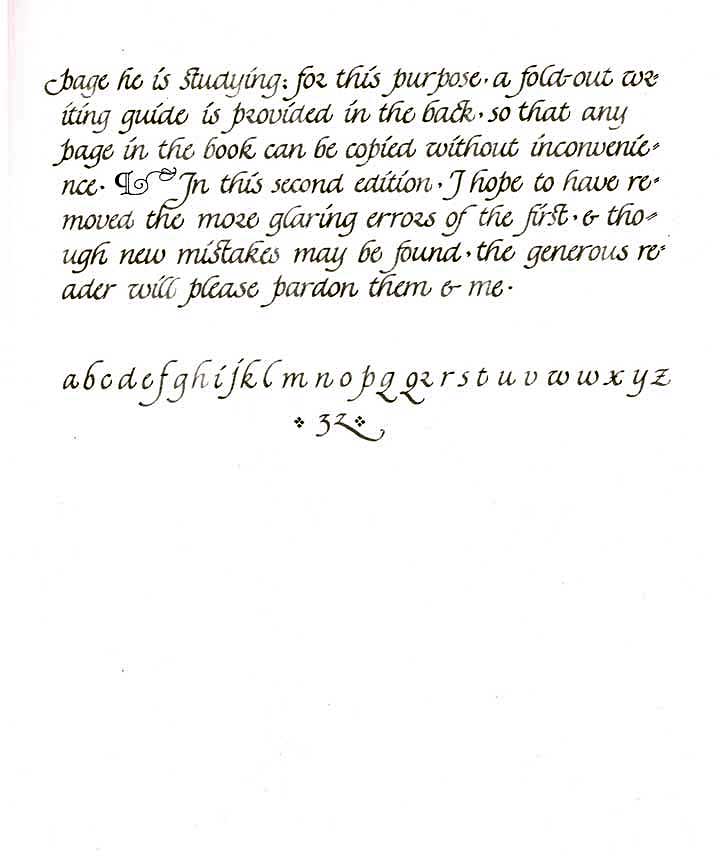 page he is studying: for this purpose· a fold-out wr-
iting guide is provided in the back· so that any
page in the book can be copied without inconvenie-
nce· ¶ In this second edition· I hope to have re-
moved the more glaring errors of the first· & tho-
ugh new mistakes may be found· the generous re-
ader will please pardon them & me·
a b c d e f g h i j k l m n o p q q r r s t u v w w x y z
32